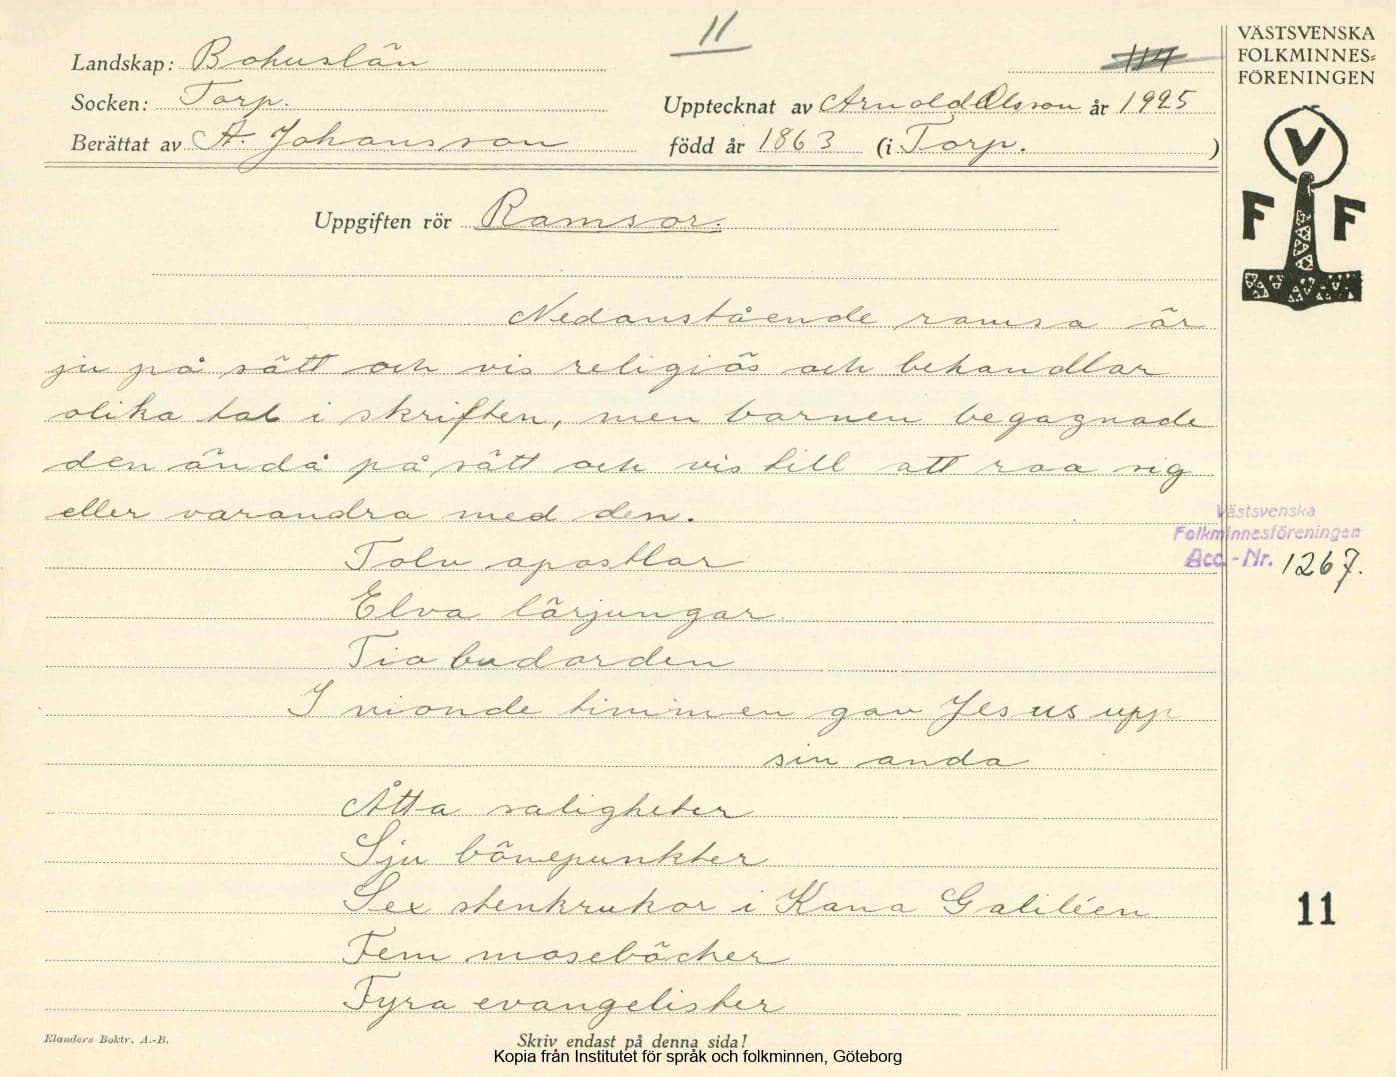 11
114
Landskap: Bohuslän
Socken: Torp.
Upptecknat av Arnold Olsson år 1925
Berättat av A. Johansson
född år 1863 (i Torp.)
Uppgiften rör Ramsor.
Nedanstående ramsa är
ju på sätt och vis religiös och behandlar
olika tal i skriften, men barnen begagnade
den ändå på sätt och vis till att roa sig
eller varandra med den.
Tolv apostlar
Elva lärjungar
Tio budorden
I nionde timmen gav Jesus upp
sin anda
Åtta saligheter
Sju bönepunkter
Sex stenkrukor i Kana Galiléen
Fem moseböcker
Fyra evangelister
Elanders Boktr. A.-B.
Skriv endast på denna sida!
Kopia från Institutet för språk och folkminnen, Göteborg
VÄSTSVENSKA
FOLKMINNES=
FÖRENINGEN
V
F F
Västsvenska
Folkminnesföreningen
Acc.-Nr. 1267.
11